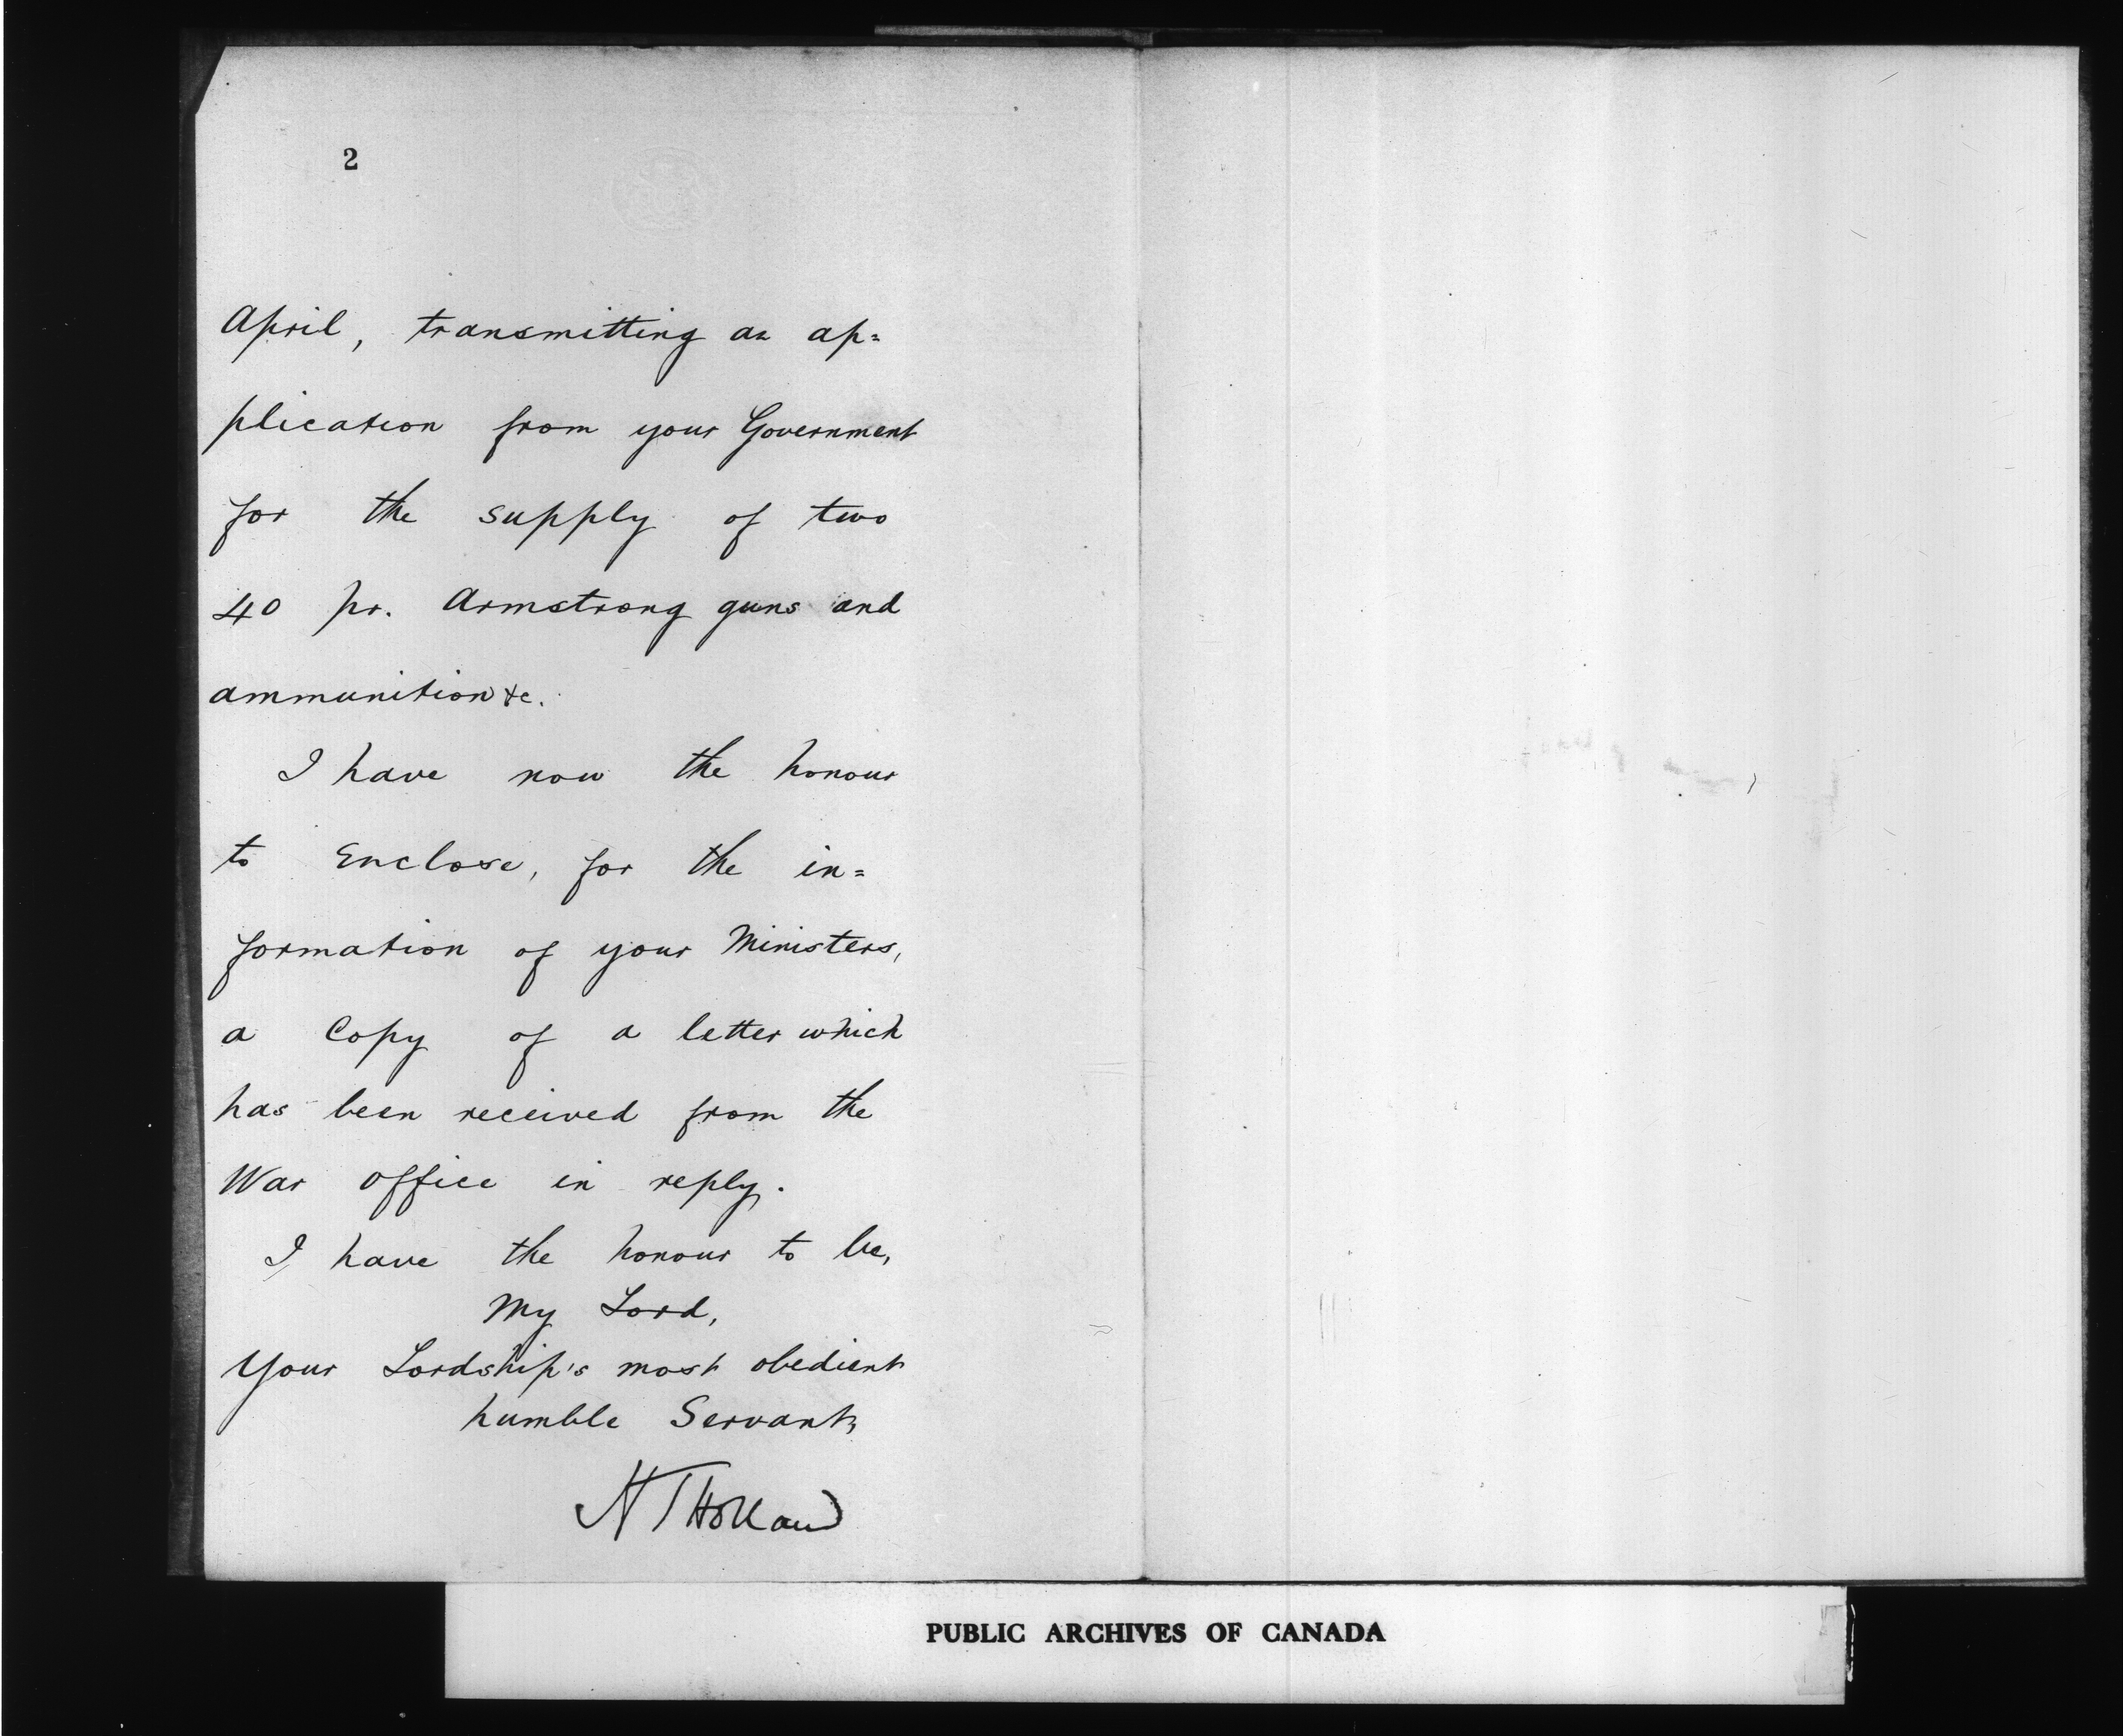 2
April, transmitting an ap=
plication from your Government
for the supply of two
40 pr. Armstrong guns and
ammunition &c.
I have now the honour
to Enclose, for the in=
formation of your Ministers,
a Copy of a letter which
has been received from the
War Office in reply.
I have the honour to be,
My Lord,
Your Lordship's most obedient
humble Servant,
H T Holland
PUBLIC ARCHIVES OF CANADA